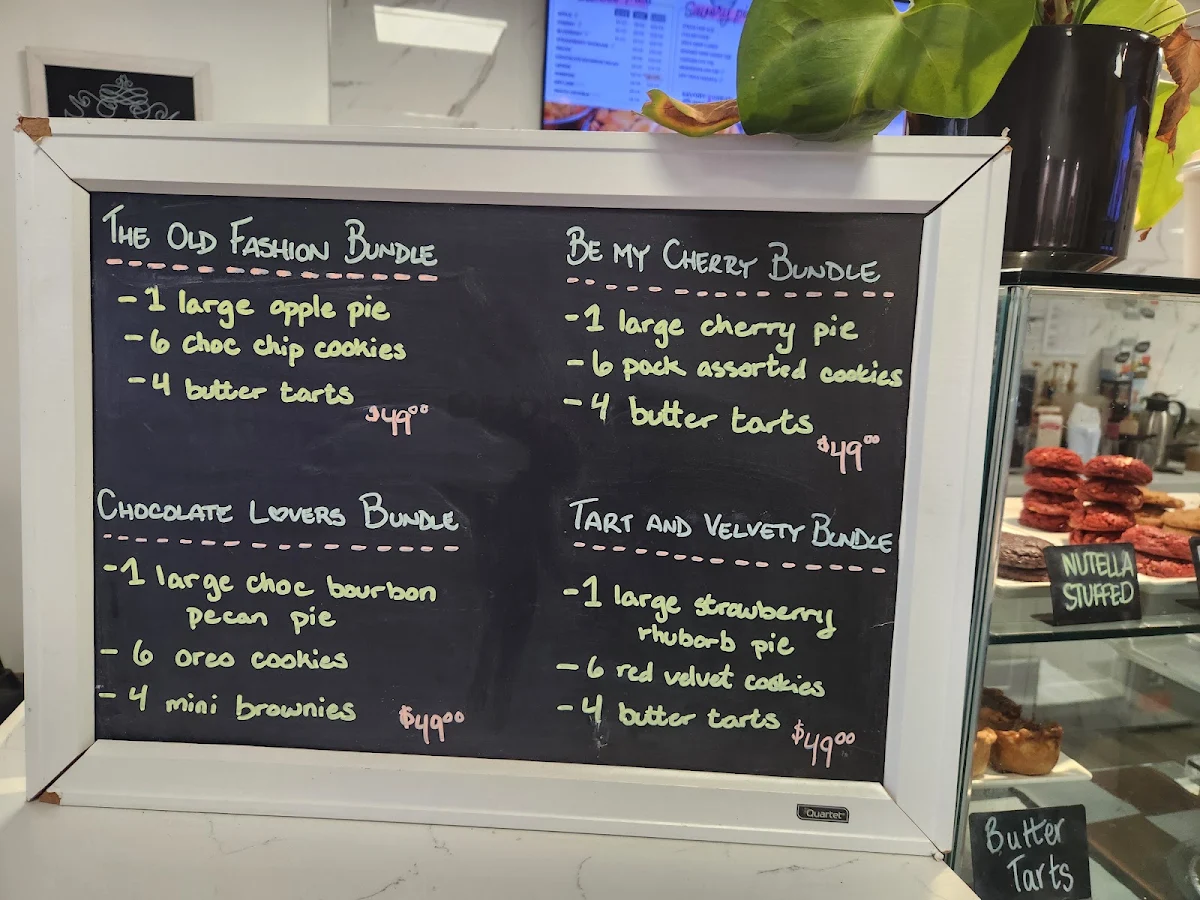 THE OLD FASHION BUNDLE
-1 large apple pie
-6 choc chip cookies
-4 butter tarts
$49⁰⁰
BE MY CHERRY BUNDLE
-1 large cherry pie
-6 pack assorted cookies
-4 butter tarts
$49⁰⁰
CHOCOLATE LOVERS BUNDLE
-1 large choc bourbon
pecan pie
- 6 oreo cookies
- 4 mini brownies
$49⁰⁰
TART AND VELVETY BUNDLE
-1 large strawberry
rhubarb pie
- 6 red velvet cookies
- 4 butter tarts
$49⁰⁰
Quartet
NUTELLA
STUFFED
Butter
Tarts